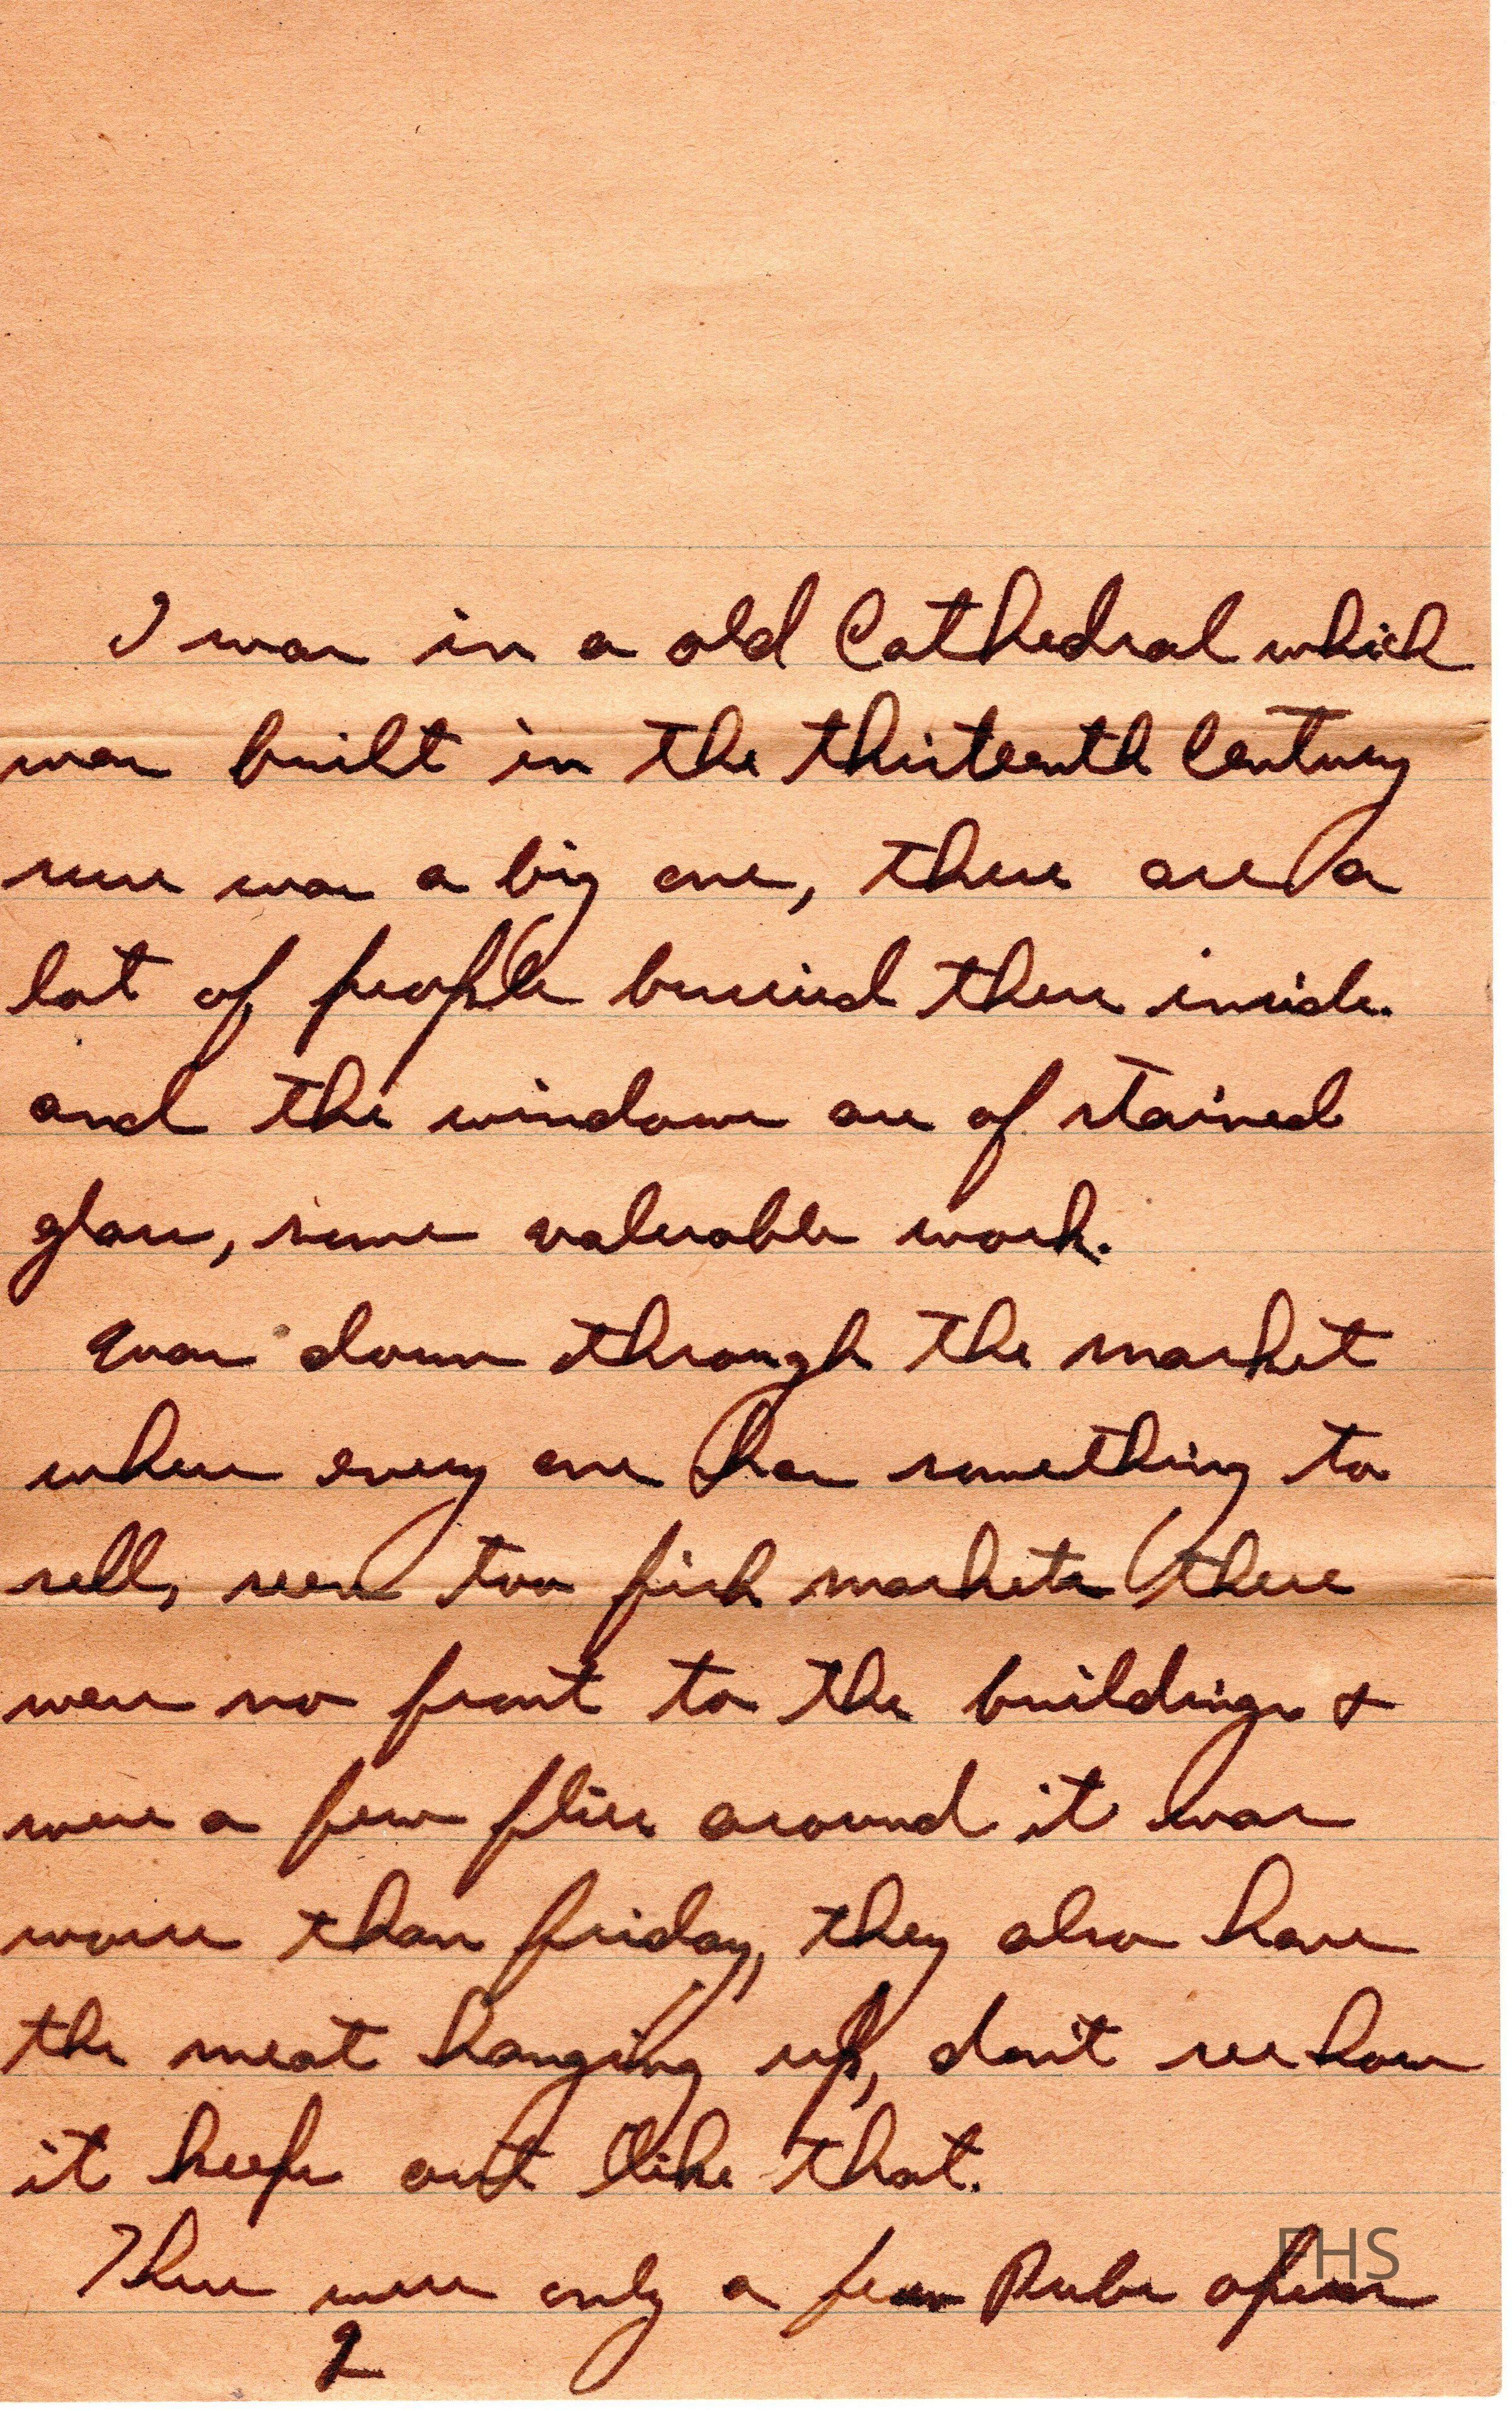 I was in a old Cathedral which
was built in the thirteenth Century
sure was a big one, there are a
lot of people burried there inside.
and the windows are of stained
glass, some valuable work.
Was down through the market
where every one has something to
sell, seen two fish markets there
were no front to the buildings &
were a few flies around it was
worse than friday, they also have
the meat hanging up, don't see how
it keeps out like that.
There were only a few Pubs open
2
FHS